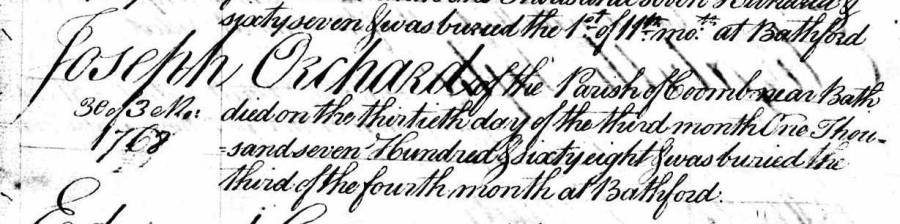 sixty seven & was buried the 1st of 11th mo: at Bathford
Joseph Orchard of the Parish of Coomb near Bath
30 of 3 Mo:
died on the thirtieth day of the third month One Thou-
1768
=sand seven Hundred & sixty eight & was buried the
third of the fourth month at Bathford: